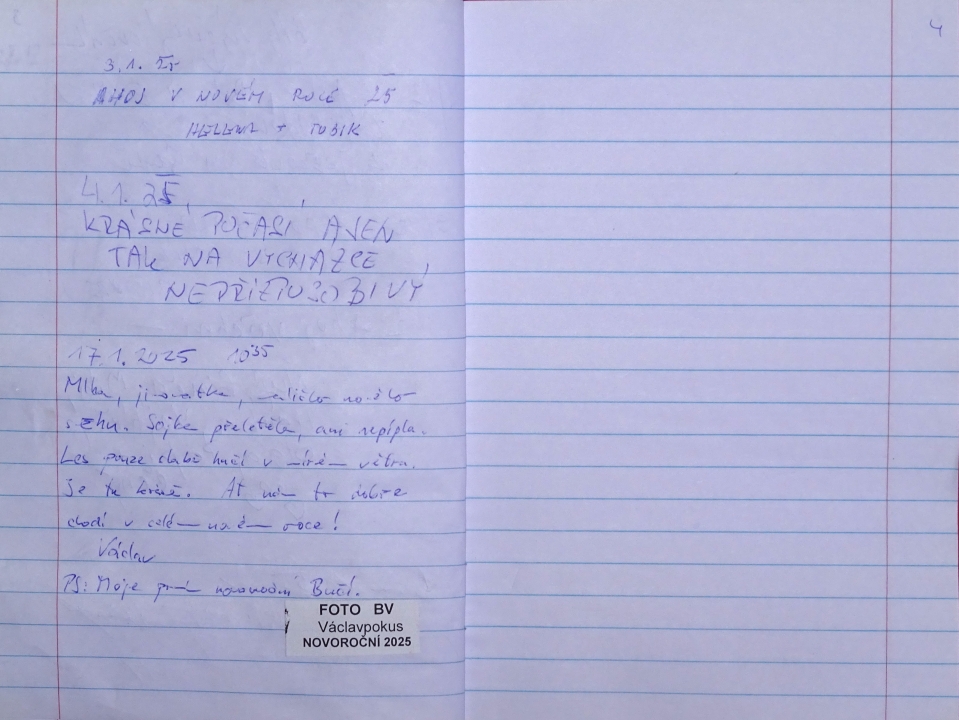 4
3.1. 25
AHOJ V NOVÉM ROCE 25
HELENA + TOBIK
4.1.25,
KRÁSNÉ POČASÍ A JEN
TAK NA VYCHÁZCE
NEPŘIZPŮSOBIVÝ
17.1.2025 10³⁵
Mlha, jinovatka, maličko
sněhu. Sojka přeletěla, ani nepípla.
Les pouze slabě hučí v mírném větru.
Je tu krásně. Ať nám to dobře
chodí v celém novém roce!
Václav
PS: Moje první novoroční Bučí.
FOTO BV
Václavpokus
NOVOROČNÍ 2025